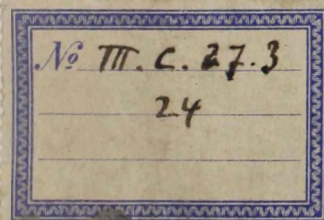 № III. C. 27.3
24